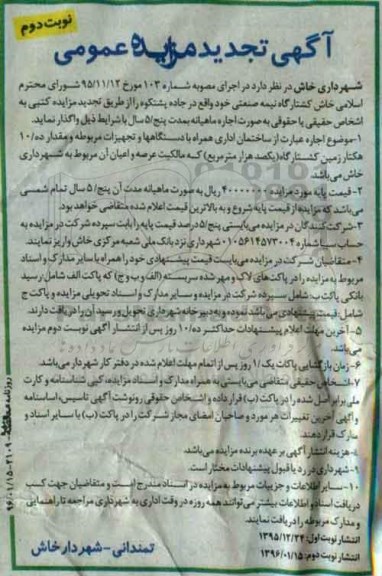 نوبت دوم
آگهی تجدید مزایده عمومی
شهرداری خاش در نظر دارد در اجرای مصوبه شماره ۱۰۳ مورخ ۹۵/۱۱/۱۲ شورای محترم
اسلامی خاش کشتارگاه نیمه صنعتی خود واقع در جاده پشتکوه را از طریق تجدید مزایده کتبی به
اشخاص حقیقی یا حقوقی به صورت اجاره ماهیانه بمدت پنج/۵ سال با شرایط ذیل واگذار نماید.
۱-موضوع اجاره عبارت از ساختمان اداری همراه با دستگاهها و تجهیزات مربوطه و مقدار ده/۱۰
هکتار زمین کشتارگاه (یکصد هزار مترمربع) که مالکیت عرصه و اعیان آن مربوط به شهرداری
خاش می باشد.
۲-قیمت پایه مورد مزایده ۴۰۰۰۰۰۰۰ ریال به صورت ماهیانه مدت آن پنج/۵ سال تمام شمسی
می باشد که مزایده از قیمت پایه شروع و به بالاترین قیمت اعلام شده متقاضی خواهد بود.
۳-شرکت کنندگان در مزایده می بایستی پنج/۵ درصد قیمت پایه را بابت سپرده شرکت در مزایده به
حساب سپا شماره ۰۱۰۵۶۱۴۵۷۳۰۰۴ شهرداری نزد بانک ملی شعبه مرکزی خاش واریز نمایند.
۴-متقاضیان شرکت در مزایده می بایست قیمت پیشنهادی خود را همراه با سایر مدارک و اسناد
مربوط به مزایده را در پاکت های لاک و مهر شده سربسته (الف و ب و ج) که پاکت الف شامل رسید
بانکی پاکت ب شامل سپرده شرکت در مزایده و سایر مدارک و اسناد تحویلی مزایده و پاکت ج
شامل قیمت پیشنهادی می باشد نموده و به دبیرخانه شهرداری تحویل و رسید آن را دریافت دارند.
۵-آخرین مهلت اعلام پیشنهادات حداکثر ده/۱۰ روز پس از انتشار آگهی نوبت دوم مزایده
می باشد.
۶-زمان بازگشایی پاکات یک/۱ روز پس از اتمام مهلت اعلام شده در دفتر کار شهردار می باشد.
۷-اشخاص حقیقی متقاضی می بایستی به همراه مدارک و اسناد مزایده، کپی شناسنامه و کارت
ملی برابر اصل شده را در پاکت (ب) قرار داده و اشخاص حقوقی رونوشت آگهی تاسیس، اساسنامه
و آگهی آخرین تغییرات هر مورد و صاحبان امضای مجاز شرکت را در پاکت (ب) با سایر اسناد و
مدارک قرار دهند.
۸-هزینه انتشار آگهی بر عهده برنده مزایده می باشد.
۹-شهرداری در رد یا قبول پیشنهادات مختار است.
۱۰-سایر اطلاعات و جزییات مربوط به مزایده در اسناد مندرج است و متقاضیان جهت کسب
دریافت اسناد و اطلاعات بیشتر می توانند همه روزه در وقت اداری به شهرداری مراجعه تا راهنمایی
و مدارک مربوطه را دریافت نمایند.
انتشار نوبت اول: ۱۳۹۵/۱۲/۲۴
انتشار نوبت دوم: ۱۳۹۶/۰۱/۱۵
تمندانی - شهردار خاش